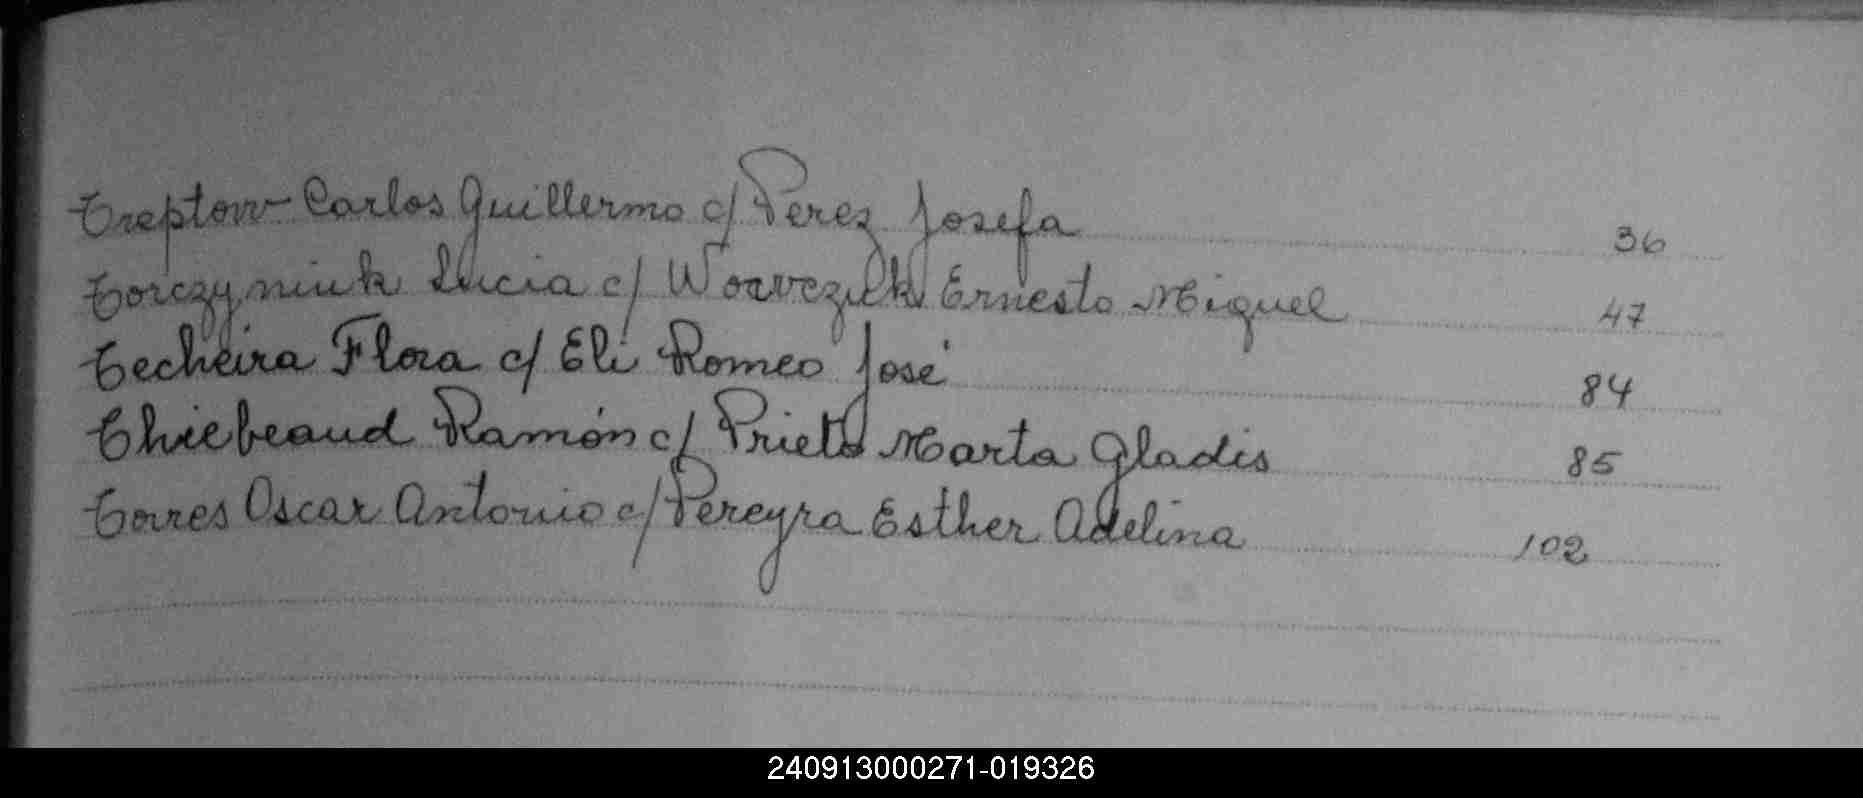 Treptow Carlos Guillermo c/ Perez Josefa 36
Torczyniuk Lucia c/ Worvczuk Ernesto Miguel 47
Techeira Flora c/ Eli Romeo José 84
Thiebeaud Ramón c/ Prieto Marta Gladis 85
Torres Oscar Antonio c/ Pereyra Esther Adelina 102
240913000271-019326